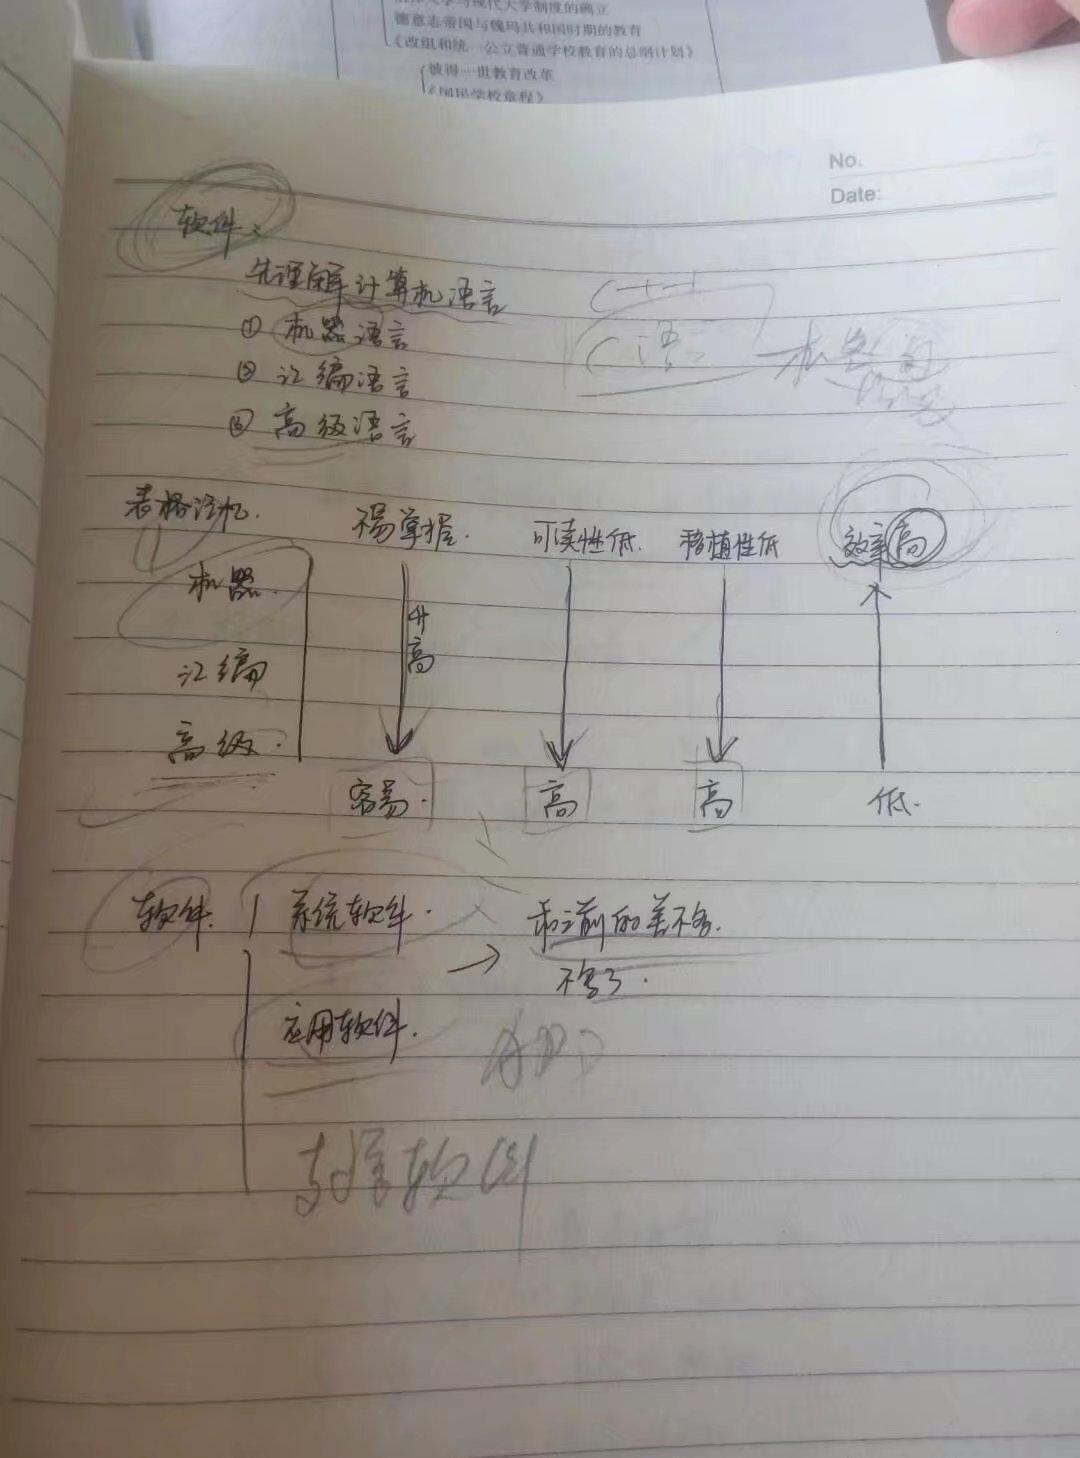 德意志帝国与魏玛共和国时期的教育
《改组和统一公立普通学校教育的总纲计划》
彼得一世教育改革
《国民学校章程》
No.
Date:
软件:
先理解计算机语言
① 机器语言
② 汇编语言
③ 高级语言
C++
C语言
表格记忆.
不易掌握.
可读性低.
移植性低
效率高
机器.
汇编
高级.
升高
容易.
高
高
低.
软件.
系统软件.
应用软件.
支撑软件
和之前的差不多.
不多了.